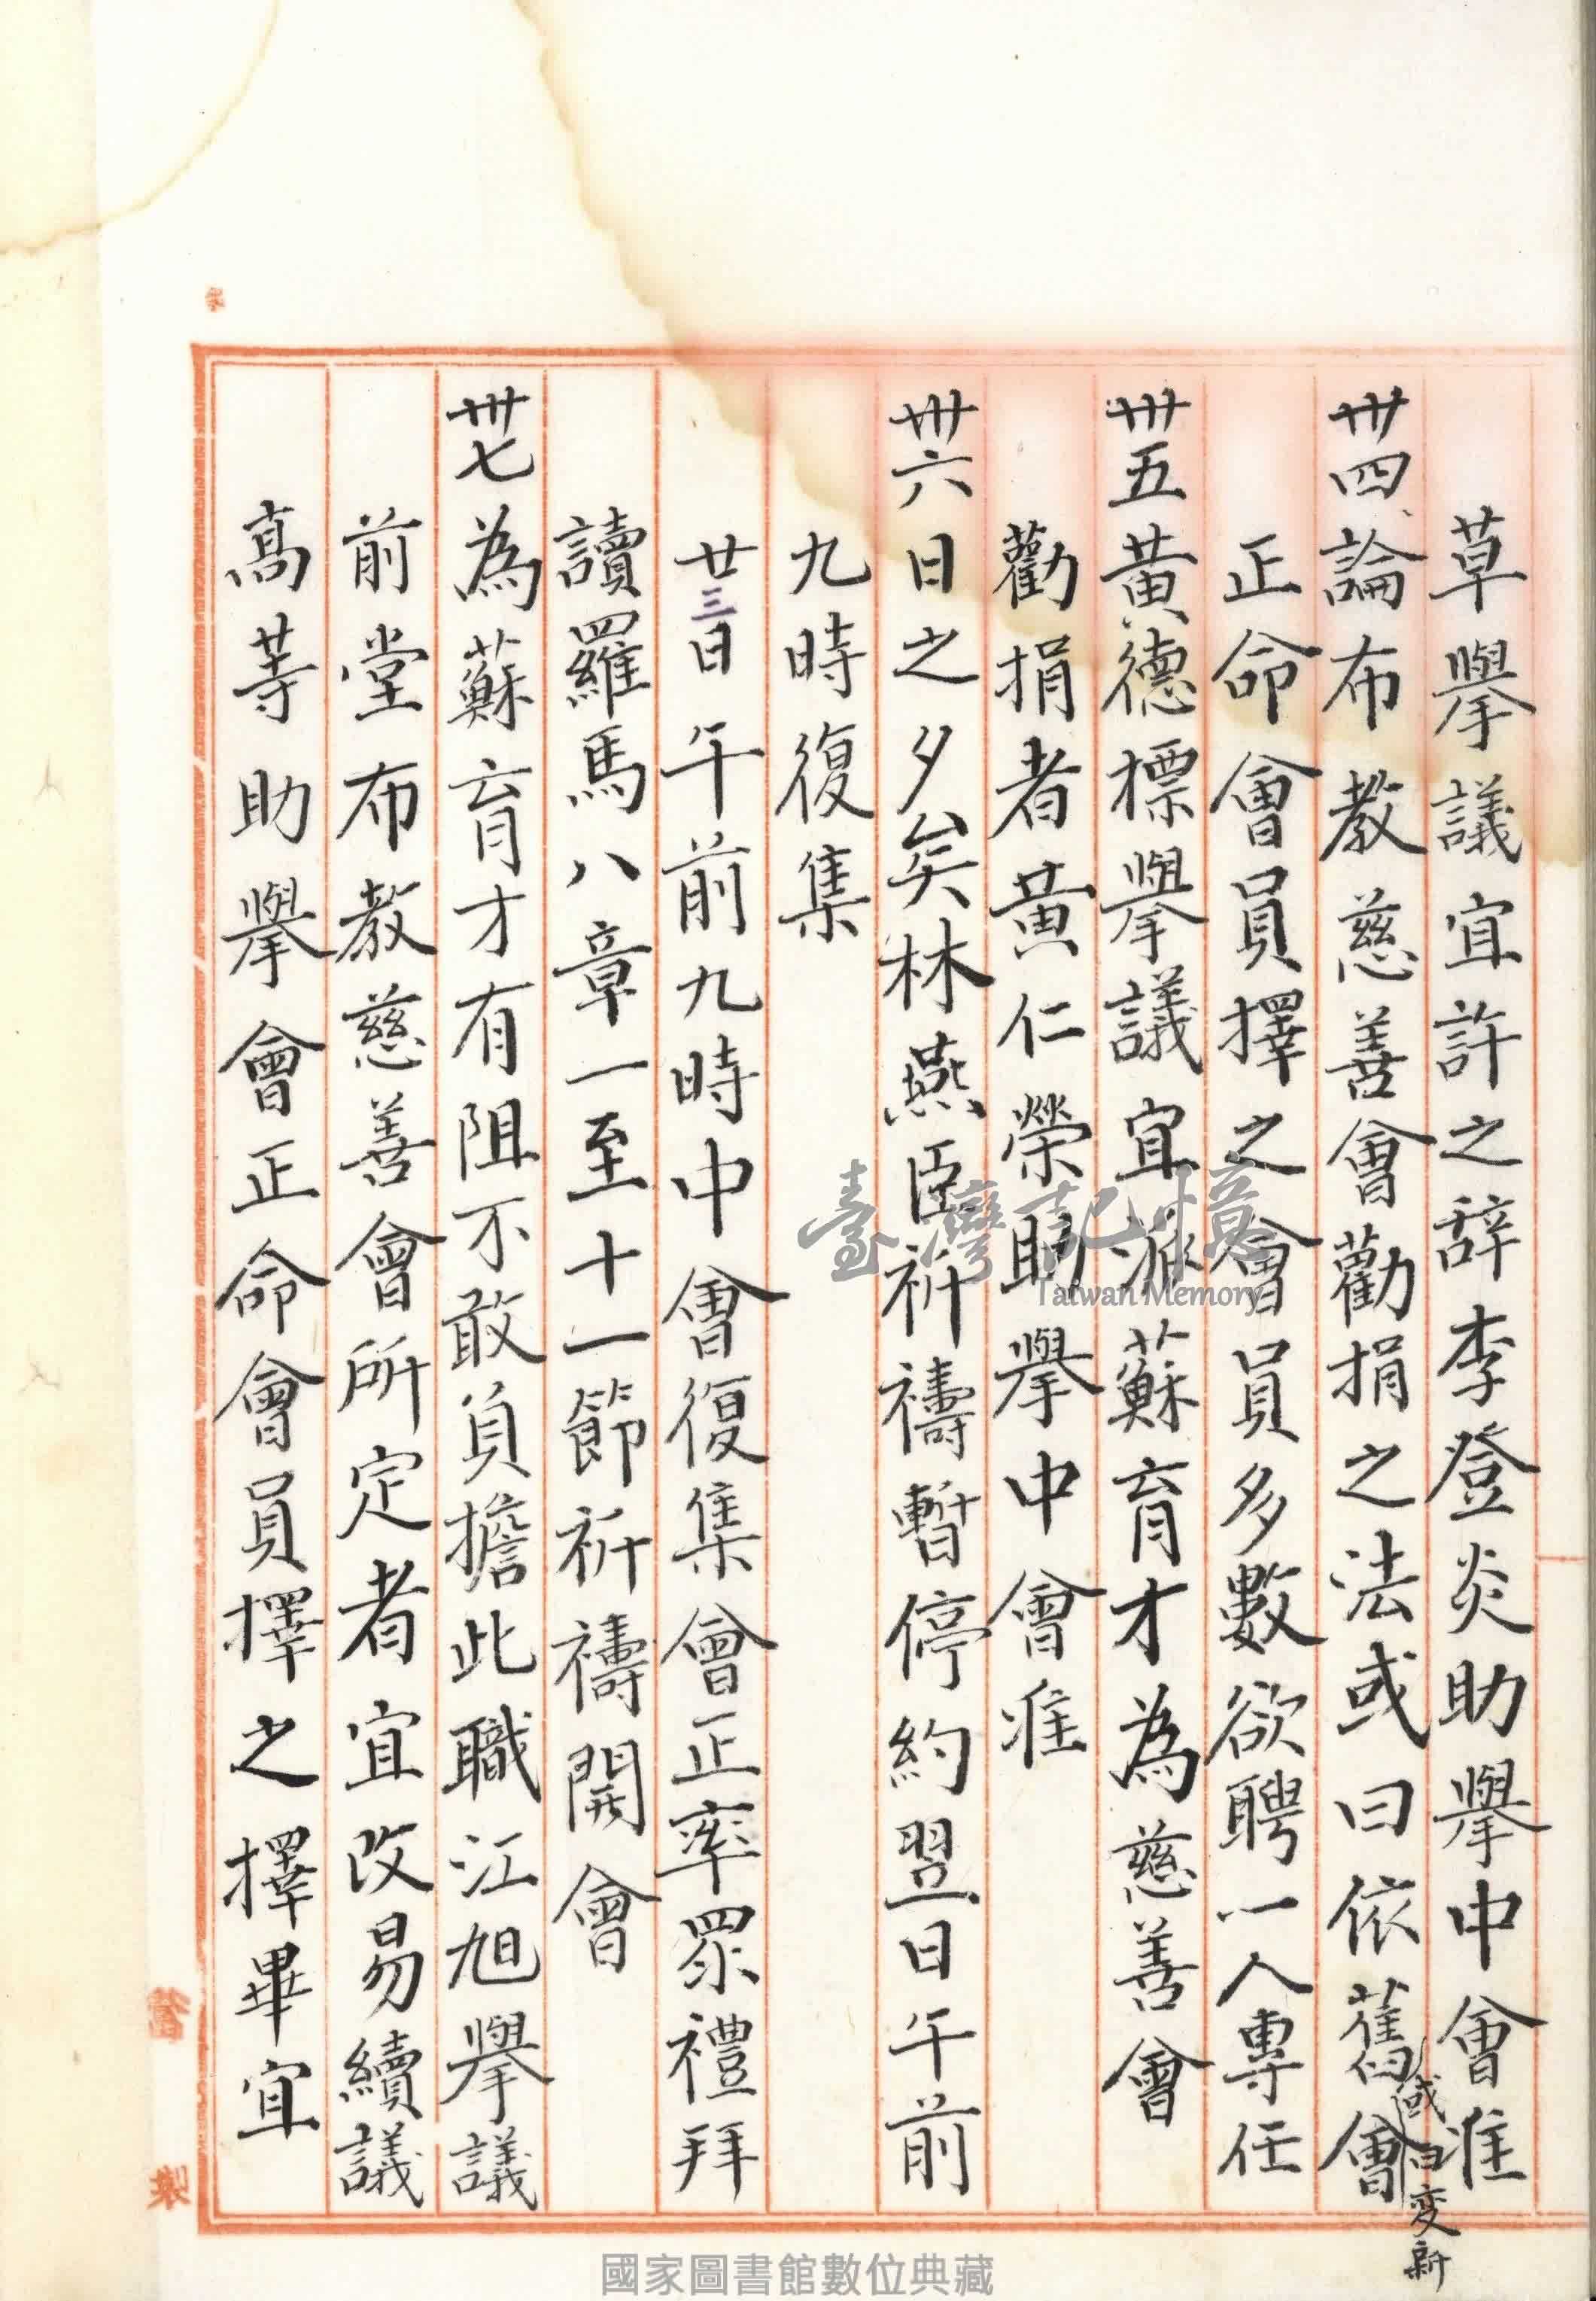 草擧議宜許之辞李登炎助擧中會准
卅四論布教慈善會勸捐之法或曰依舊會
或曰変新
正命會員擇之會員多數欲聘一人專任
卅五黃德標擧議宜派蘇育才為慈善會
勸捐者黃仁榮助擧中會准
卅六日之夕矣林燕臣祈禱暫停約翌日午前
九時復集
廿三日午前九時中會復集會正率眾禮拜
讀羅馬八章一至十一節祈禱開會
卅七為蘇育才有阻不敢負擔此職江旭擧議
前堂布教慈善會所定者宜改易續議
高等助擧會正命會員擇之擇畢宜
臺灣記憶
Taiwan Memory
國家圖書館數位典藏